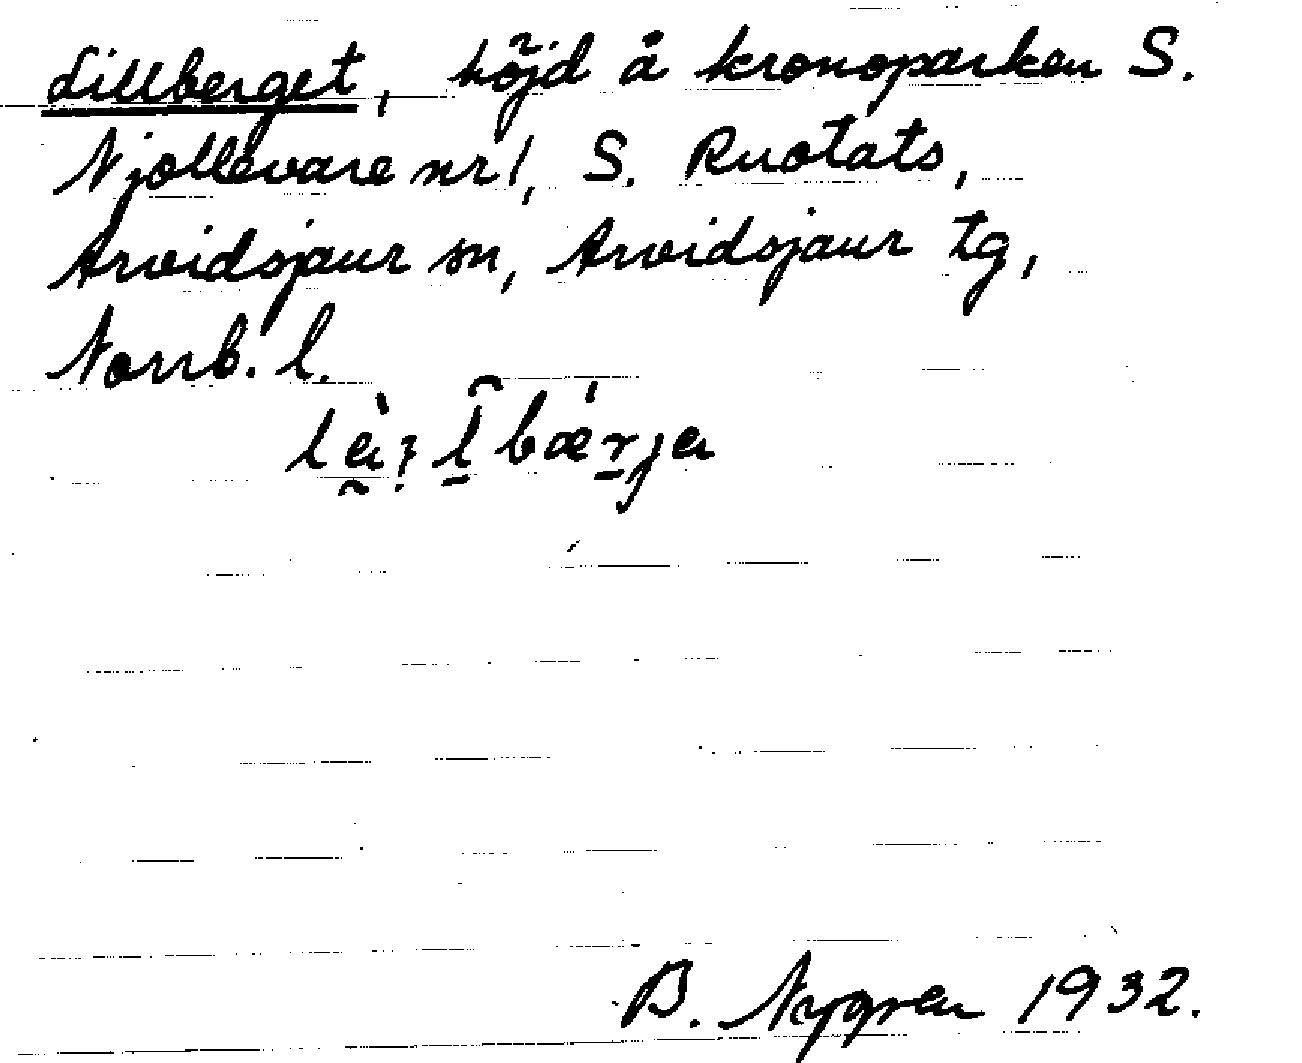 Lillberget, höjd å kronoparken S.
Njollevare nr 1, S. Ruotats,
Arvidsjaur sn, Arvidsjaur tg,
Norrb. l.
B. Nygren 1932.